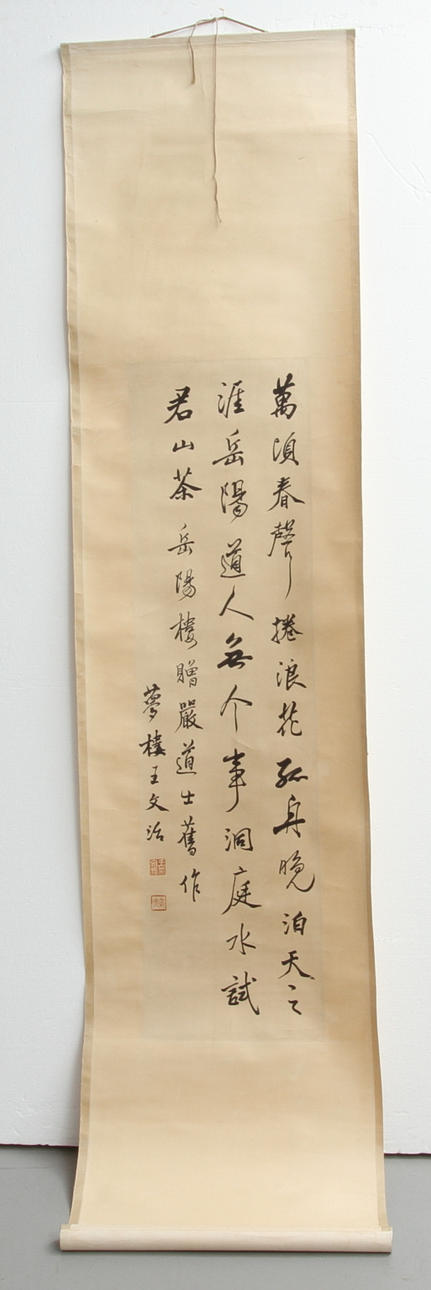 萬頃春聲捲浪花孤舟晚泊天之
涯岳陽道人無个事洞庭水試
君山茶
岳陽樓贈嚴道士舊作
夢樓王文治